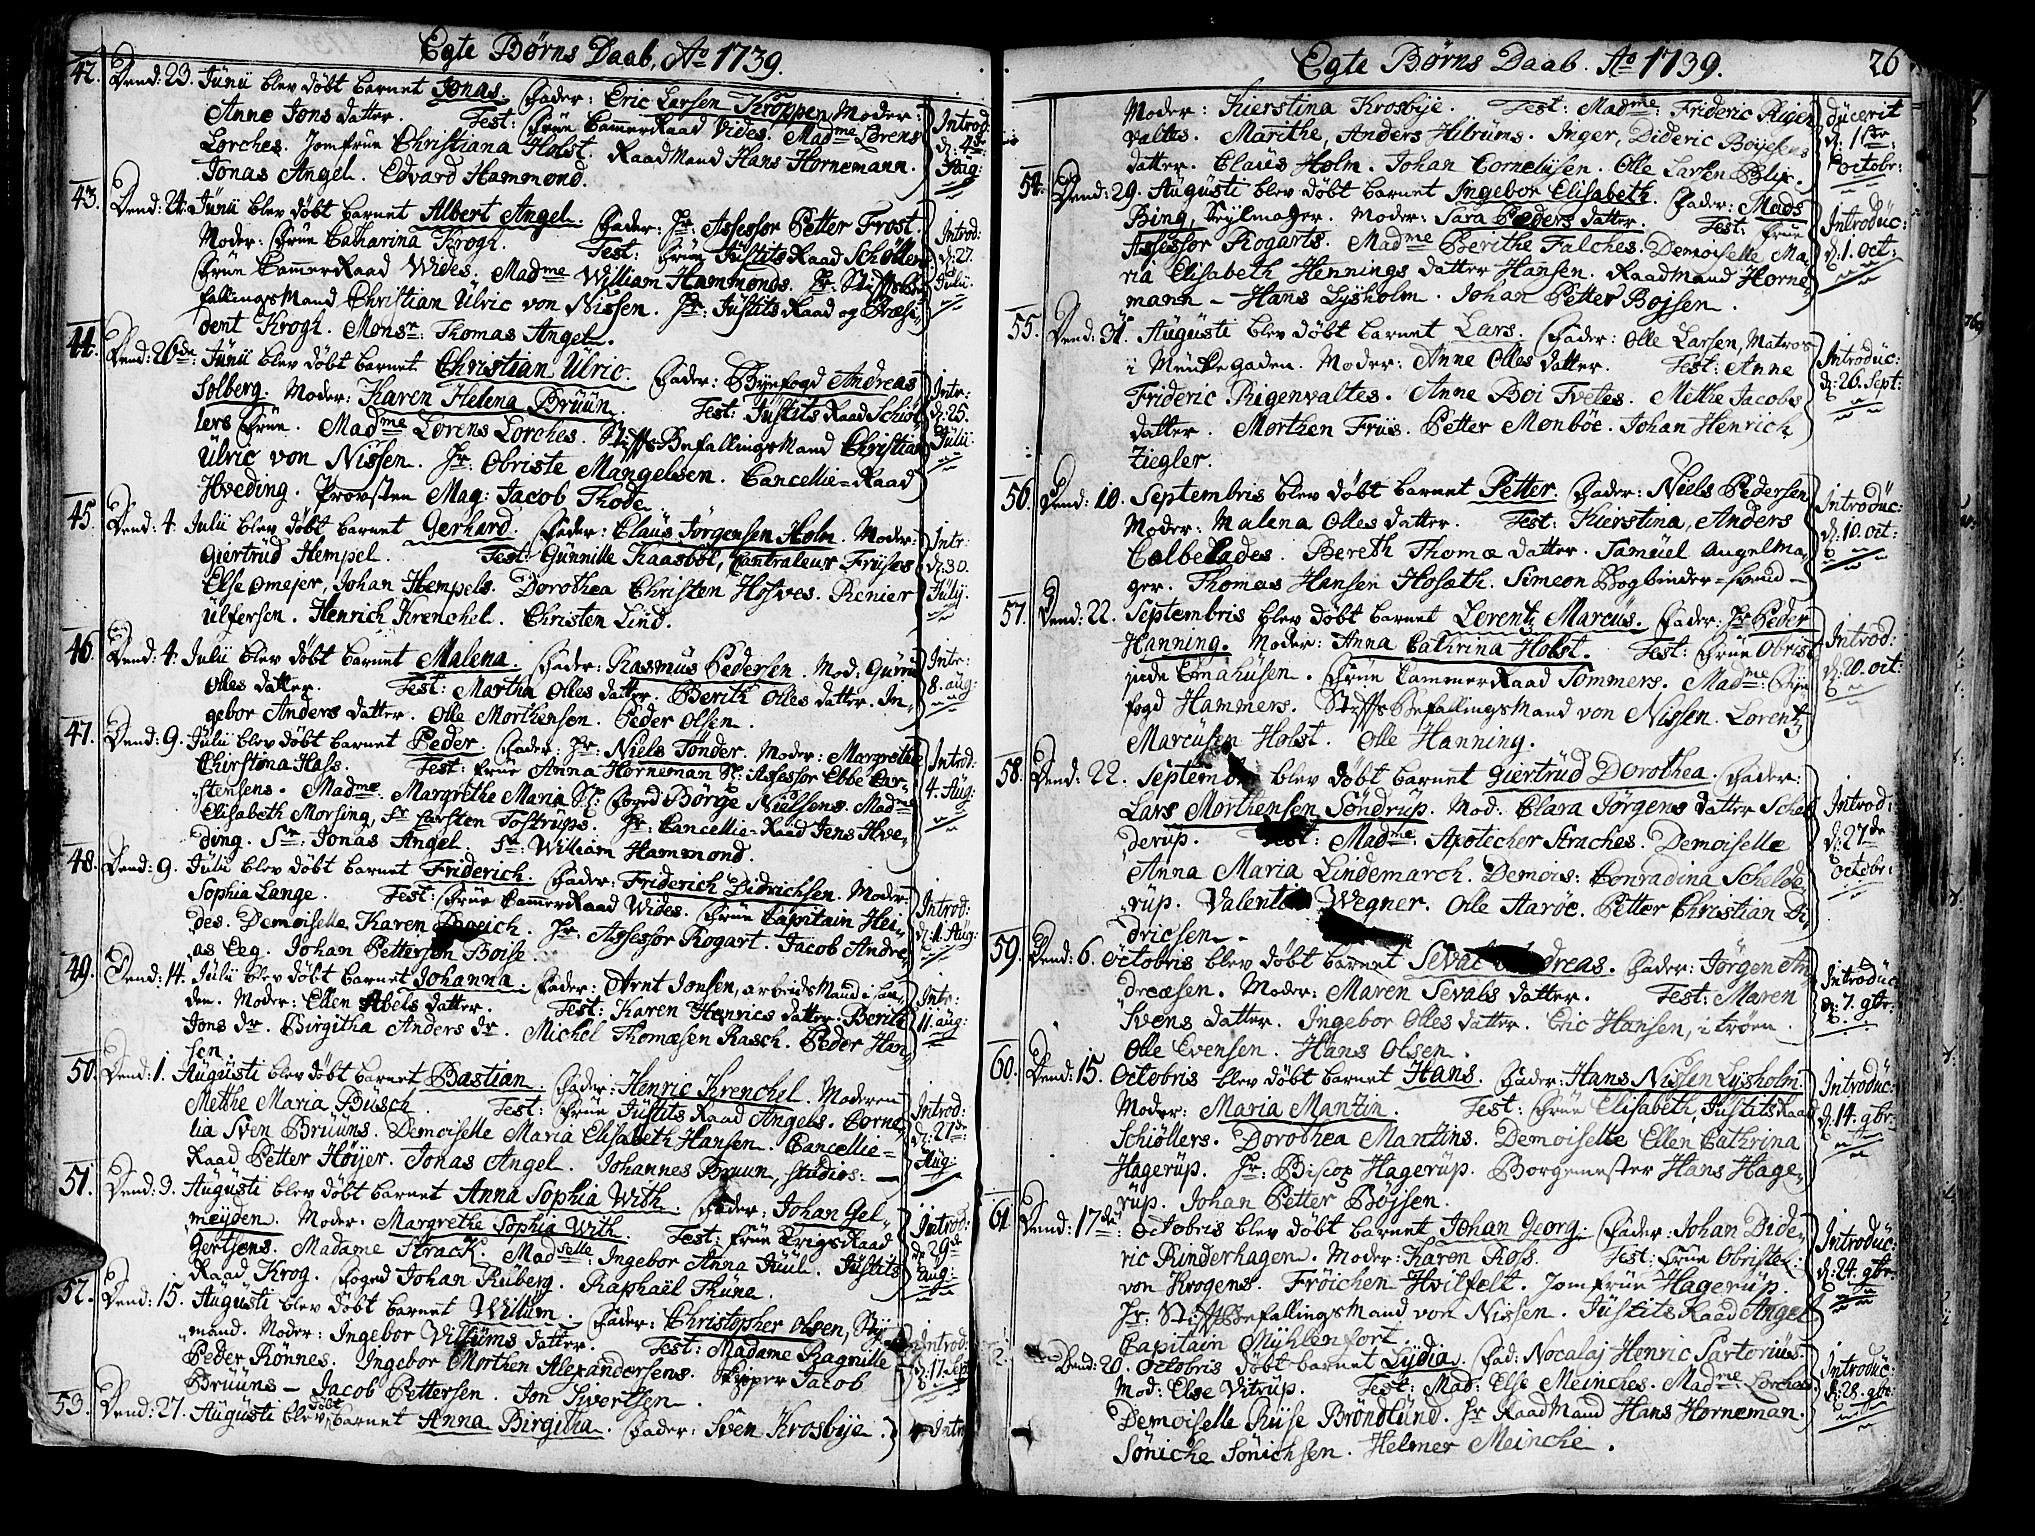 Egte Børns Daab, Ao 1739.
42. Dend: 23. Junii blev døbt barnet Jonas. Fader: Eric Larsen Kroppen Moder:
Anne Jons datter. Test: Frue CammerRaad Vides. Madme Lorens
Lorches. Jomfrue Christiana Holst. RaadMand Hans Hornemann.
Jonas Angel. Edvard Hammond.
Introd:
d: 4de
Aug:
43. Dend: 24. Junii blev døbt barnet Albert Angel. Fader: Hr Assessor Petter Frost.
Moder: Frue Catharina Krogh. Test: Frue JustitsRaad Schøllers
Frue CammerRaad Wides. Madme William Hammonds. Hr. StiftsBe-
fallingsMand Christian Ulric von Nissen. Hr: JustitsRaad og Præsi-
dent Krogh. Monsr: Thomas Angel.
Introd:
d: 27.
Julii.
44. Dend: 26de Junii blev døbt barnet Christian Ulric. Fader: Byefogd Andreas
Solberg. Moder: Karen Helena Bruun. Test: JustitsRaad Schiøl-
lers Frue. Madme Lorens Lorches. StiftsBefallingsMand Christian
Ulric von Nissen. Hr: Obriste Mangelsen. Cancellie-Raad
Hveding. Provsten Mag: Jacob Thode.
Intr:
d: 25.
Julii
45. Dend: 4. Julii blev døbt barnet Gerhard. Fader: Claus Jørgensen Holm. Moder:
Giertrud Hempel. Test: Gunnille Kaasbøl, Contraleur Friises
Else Omejer, Johan Hempels. Dorothea Christen Hofves. Renier
Ulfersen. Henrich Krenchel. Christen Lind.
Intr:
d: 30.
Julij.
46. Dend: 4. Julii blev døbt barnet Malena. Fader: Rasmus Pedersen. Mod: Gurru
Olles datter. Test: Martha Olles datter. Berith Olles datter. In-
gebor Anders datter. Olle Morthensen. Peder Olsen.
Intr:
8. aug:
47. Dend: 9. Julii blev døbt barnet Peder. Fader: Hr: Niels Tønder. Moder: Margrethe
Chirstina Hass. Test: Frue Anna Horneman Sl: Assessor Ebbe Car-
stensens. Madme. Margrethe Maria Sl: Foged Børge Nielsens. Madme
Elisabeth Morsing, Sr Carsten Tostrups. Hr: Cancellie-Raad Jens Hve-
ding. Sr: Jonas Angel. Sr: William Hammond.
Introd:
4. Aug:
48. Dend: 9. Julii blev døbt barnet Friderich. Fader: Friderich Didrichsen. Moder:
Sophia Lange. Test: Frue CammerRaad Wides. Frue Capitain Hei-
des. Demoiselle Karen. Hr. Assessor Rogart. Jacob Andre-
as Eeg. Johan Pettersen Boise.
Introd:
d: 11. Aug:
49. Dend: 14. Julii blev døbt barnet Johanna. Fader: Arnt Jonsen, arbeids Mand i San-
den. Moder: Ellen Abels datter. Test: Karen Henrics datter. Berith
Jons dr. Birgitha Anders dr. Michel Thomæsen Rasch. Peder Han-
sen.
Intr:
11. aug:
50. Dend: 1. Augusti blev døbt barnet Bastian. Fader: Henric Krenchel. Moderen
Methe Maria Busch. Test: Frue JustitsRaad Angels. Corne-
lia Sven Bruuns. Demoiselle Maria Elisabeth Hansen. Cancellie-
Raad Petter Høijer. Jonas Angel. Johannes Bruun, studios:
Introd:
d: 27de
Aug:
51. Dend: 9. Augusti blev døbt barnet Anna Sophia With. Fader: Johan Gel-
meyden. Moder. Margrethe Sophia With. Test: Frue KrigsRaad
Gertsens. Madame Strack. Madselle Ingebor Anna Juul. Justits
Raad Krog. Foged Johan Ruberg. Raphaël Thune.
Introd:
d: 29de
aug:
52. Dend: 15. Augusti blev døbt barnet Willum. Fader: Christopher Olsen,
mand. Moder: Ingebor Villums datter. Test: Madame Ragnille
Peder Rønnes. Ingebor Morthen Alexandersens. Skipper Jacob
Bruuns - Jacob Pettersen. Jon Sivertsen.
Introd:
d: 17. Sept
53. Dend: 27. Augusti blev døbt barnet Anna Birgitha. Fader: Sven Krosbye.
Intro
Egte Børns Daab. Ao 1739. 26
Moder: Kierstina Krosbye. Test: Madme: Frideric Rigen
valtes. Marithe, Anders Hilrums. Inger, Dideric Boyesens
datter. Claus Holm. Johan Cornelisen. Olle Larsen Blix.
ducerit
d: 1ste
octobr:
54. Dend: 29. Augusti blev døbt barnet Ingebor Elisabeth. Fader: Mads
Bing, Seylmager. Moder: Sara Peders datter. Test: Frue
Assessor Rogarts. Madme Berithe Falches. Demoiselle Ma-
ria Elisabeth Hennings datter Hansen. RaadMand Horne-
mann - Hans Lysholm. Johan Petter Bojsen.
Introduc:
d: 1. oct:
55. Dend: 31. Augusti blev døbt barnet Lars. Fader: Olle Larsen, Matros
i Munkegaden. Moder: Anne Olles datter. Test: Anne
Frideric Rigenvaltes. Anne Boi Tvetes. Methe Jacobs
datter. Morthen Friis. Petter Monbøe. Johan Henrich
Ziegler.
Introduc:
d: 26. Sept:
56. Dend: 10. Septembris blev døbt barnet Petter. Fader: Niels Pedersen
Moder: Malena Olles datter. Test: Kierstina, Anders
Calbelades. Bereth Thomæ datter. Samuel Angelma-
ger. Thomas Hansen Hosath. Simeon Bogbinder-svend -
Introduc:
d: 10. oct:
57. Dend: 22. Septembris blev døbt barnet Lorentz Marcus. Fader: Hr Peder
Hanning. Moder: Anna Cathrina Holst. Test: Frue Obrist
Emahusen. Frue CammerRaad Sommers. Madme Bye
fogd Hammers. StiftsBefallingsMand von Nissen. Lorentz
Marcusen Holst. Olle Hanning.
Introd:
d: 20. oct:
58. Dend: 22. Septembris blev døbt barnet Giertrud Dorothea. Fader:
Lars Morthensen Søndrup. Mod: Clara Jørgens datter Schel
derup. Test: Madme. Apotecher Straches. Demoiselle
Anna Maria Lindemarch. Demois: Conradina Schelde-
rup. Valentin Wegner. Olle Aarøe. Petter Christian Di-
dricsen.
Introd:
d: 27de
octobr:
59. Dend: 6. Octobris blev døbt barnet Seval Andreas. Fader: Jørgen An-
dreæsen. Moder: Maren Sevals datter. Test: Maren
Svens datter. Ingebor Olles datter. Eric Hansen, i trøen.
Olle Evensen. Hans Olsen.
Introduc:
d: 7. gbr:
60. Dend: 15. Octobris blev døbt barnet Hans. Fader: Hans Nissen Lysholm
Moder: Maria Mantzin. Test: Frue Elisabeth, JustitsRaad
Schiøllers. Dorothea Mantzins. Demoiselle Ellen Cathrina
Hagerup. Hr: Biscop Hagerup. Borgemester Hans Hage-
rup. Johan Petter Bojsen.
Introduc:
d: 14. gbr:
61. Dend: 17de Octobris blev døbt barnet Johan Georg. Fader: Johan Dide-
ric Rinderhagen. Moder: Karen Ross. Test: Frue Obriste
von Krogens. Frøichen Hvitfelt. Jomfrue Hagerup.
Hr: StiftsBefallingsMand von Nissen. JustitsRaad Angel.
Capitain Mühlenfort.
Introduc:
d: 24. gbr:
2. Dend: 20. Octobris døbt barnet Lydia. Fad: Nocalaj Henric Sartorius.
Mod: Else Vitrup. Test: Mad: Else Meinches. Madme Lorches.
Demoiselle Riise Brøndlund. Hr RaadMand Hans Horneman.
Søniche Sønichsen. Helmer Meinche.
Introduc:
d: 28. gbr: